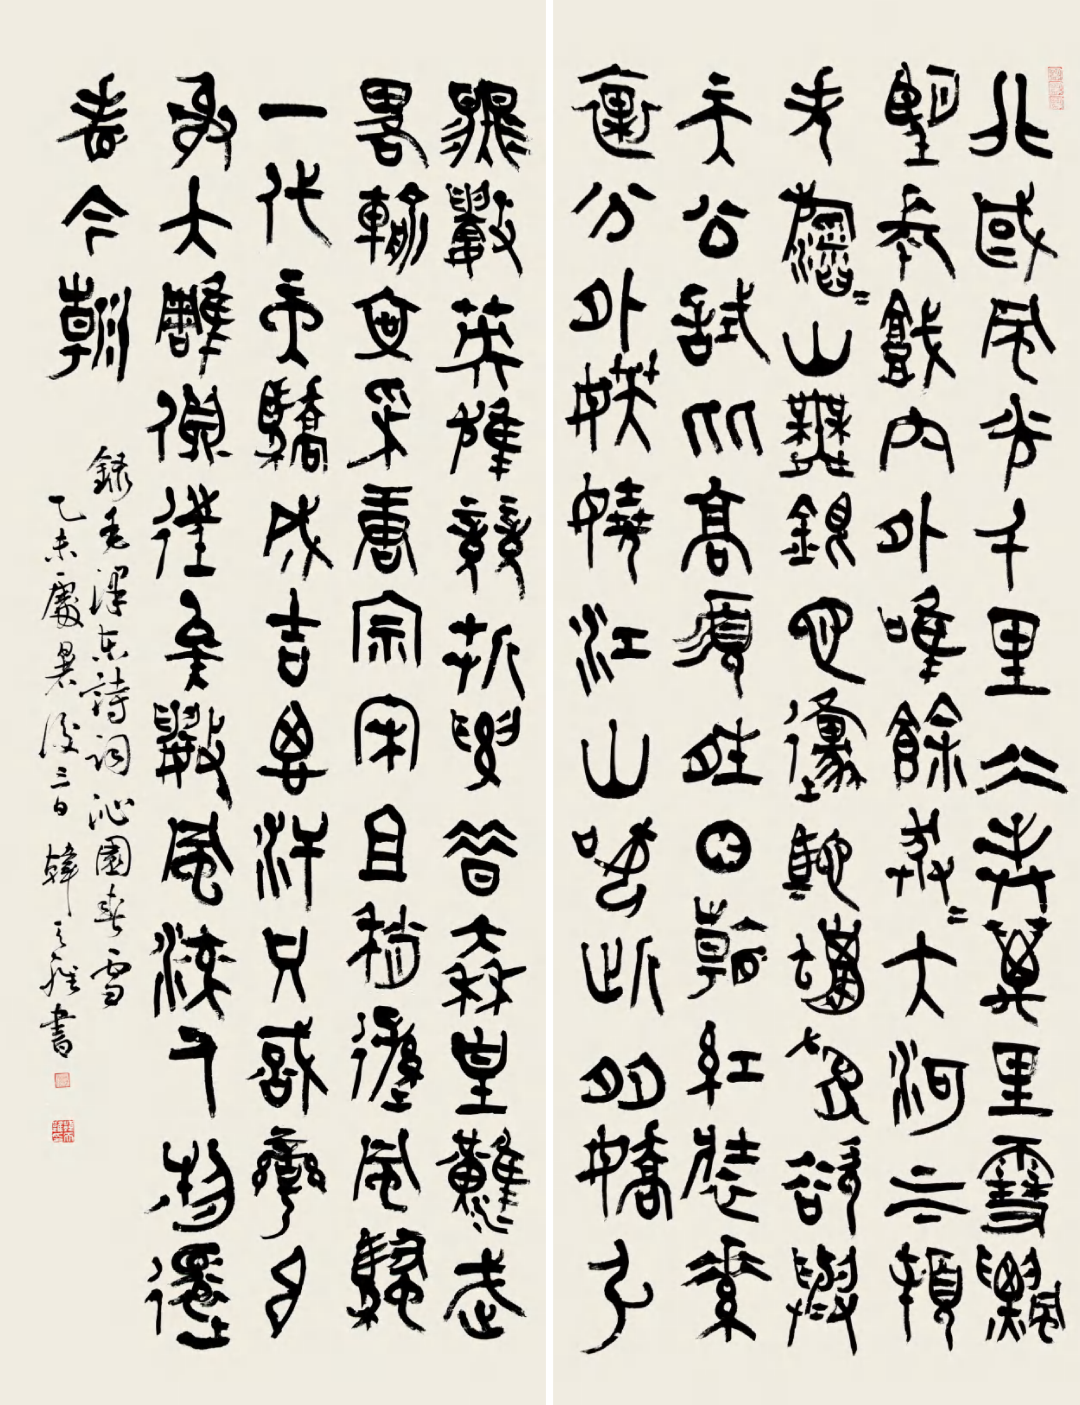 北國風光千里冰封萬里雪飄
望長城內外唯餘莽〻大河上下頓
失滔〻山舞銀蛇原馳蠟象欲與
天公試比高須晴日看紅裝素
裹分外妖嬈江山如此多嬌引
無數英雄競折腰昔秦皇漢武
略輸文采唐宗宋祖稍遜風騷
一代天驕成吉思汗只識彎弓
射大雕俱往矣數風流人物還
看今朝
錄毛澤東詩詞沁園春雪
乙未處暑後三日韓天雍書